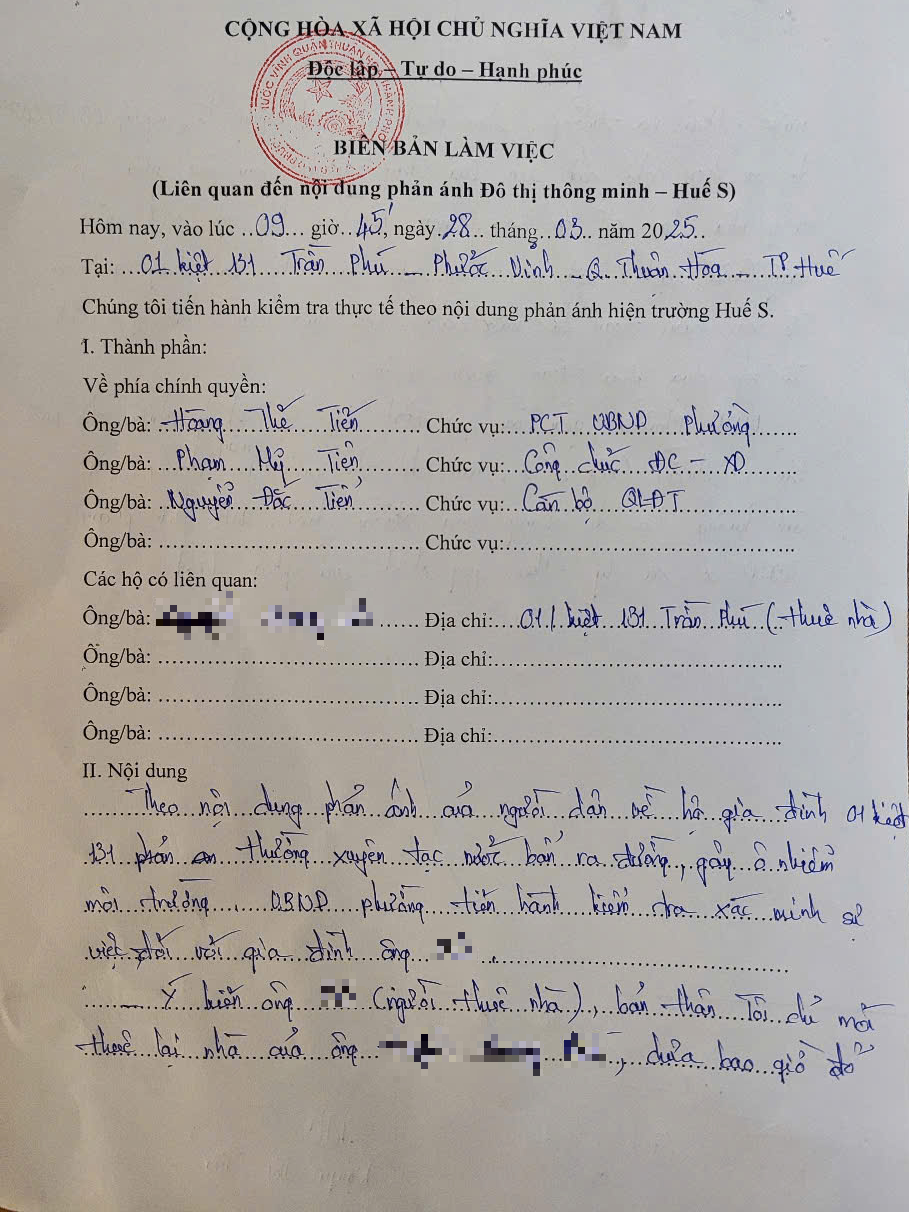 CỘNG HÒA XÃ HỘI CHỦ NGHĨA VIỆT NAM
Độc lập – Tự do – Hạnh phúc
BIÊN BẢN LÀM VIỆC
(Liên quan đến nội dung phản ánh Đô thị thông minh – Huế S)
Hôm nay, vào lúc ..09.. giờ..45', ngày.28.. tháng..03.. năm 2025..
Tại: ...01 kiệt 131 Trần Phú – Phước Vĩnh – Q. Thuận Hóa – TP Huế
Chúng tôi tiến hành kiểm tra thực tế theo nội dung phản ánh hiện trường Huế S.
I. Thành phần:
Về phía chính quyền:
Ông/bà: Hoàng Thế Tiến Chức vụ: PCT UBND Phường
Ông/bà: Phạm Mỹ Tiên Chức vụ: Công chức ĐC – XD
Ông/bà: Nguyễn Đắc Tiến Chức vụ: Cán bộ QLĐT
Ông/bà: Chức vụ:
Các hộ có liên quan:
Ông/bà: Địa chỉ: 01/ kiệt 131 Trần Phú (thuê nhà)
Ông/bà: Địa chỉ:
Ông/bà: Địa chỉ:
Ông/bà: Địa chỉ:
II. Nội dung
Theo nội dung phản ánh của người dân về hộ gia đình 01 kiệt
131 phản an thường xuyên tạc nước bẩn ra đường, gây ô nhiễm
môi trường. UBND phường tiến hành kiểm tra xác minh sự
việc đối với gia đình ông
– Ý kiến ông (người thuê nhà), bản thân Tôi chỉ mới
thuê lại nhà của ông , chưa bao giờ đổ